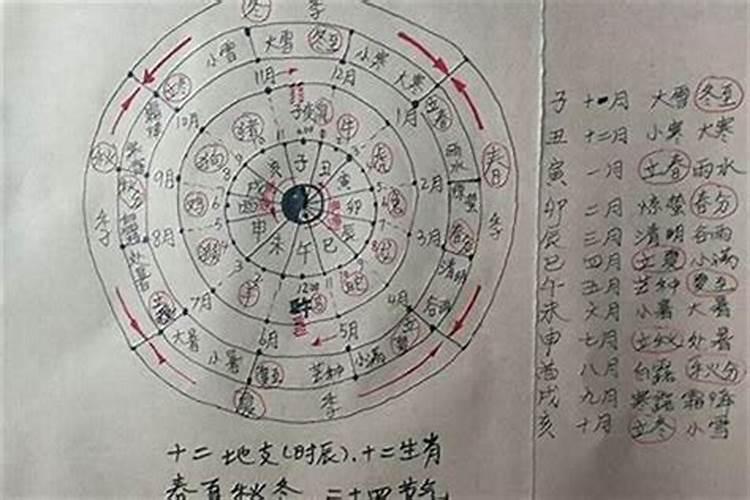 冬 季
小雪 大雪 冬至 小寒 大寒
立冬 11月 12月 立春
10月 1月
雨水
秋 季
9月 2月
秋分 惊蛰
春 季
8月 3月
春分
处暑 清明
谷雨
立秋 7月 4月 立夏
大暑 小暑 6月 5月 小满
夏至 芒种
夏 季
子 丑 寅 卯 辰 巳 午 未 申 酉 戌 亥
鼠 牛 虎 兔 龙 蛇 马 羊 猴 鸡 狗 猪
子 十一月 大雪 冬至
丑 十二月 小寒 大寒
寅 一月 立春 雨水
卯 二月 惊蛰 春分
辰 三月 清明 谷雨
巳 四月 立夏 小满
午 五月 芒种 夏至
未 六月 小暑 大暑
申 七月 立秋 处暑
酉 八月 白露 秋分
戌 九月 寒露 霜降
亥 十月 立冬 小雪
十二地支(时辰)、十二生肖
春夏秋冬 二十四节气